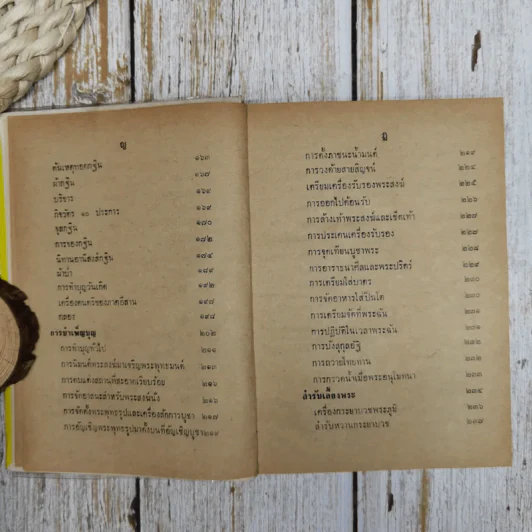 ญ
ต้นเหตุทอดกฐิน ๑๖๓
ผ้ากฐิน ๑๖๗
บริขาร ๑๖๘
กิจวัตร ๑๐ ประการ ๑๖๙
จุลกฐิน ๑๗๐
การจองกฐิน ๑๗๒
นิทานอานิสงส์กฐิน ๑๗๔
ผ้าป่า ๑๘๙
การทำบุญวันเกิด ๑๙๒
เครื่องดนตรีของภาคอีสาน ๑๙๗
กลอง ๑๙๘
การบำเพ็ญบุญ ๒๐๒
การทำบุญทั่วไป ๒๑๑
การนิมนต์พระสงฆ์มาเจริญพระพุทธมนต์ ๒๑๓
การตบแต่งสถานที่สะอาดเรียบร้อย ๒๑๖
การจัดอาสนะสำหรับพระสงฆ์นั่ง ๒๑๖
การจัดตั้งพระพุทธรูปและเครื่องสักการบูชา ๒๑๗
การอัญเชิญพระพุทธรูปมาตั้งบนที่อัญเชิญบูชา ๒๑๙
ฎ
การตั้งภาชนะน้ำมนต์ ๒๑๙
การวงด้ายสายสิญจน์ ๒๒๔
เตรียมเครื่องรับรองพระสงฆ์ ๒๒๕
การออกไปต้อนรับ ๒๒๖
การล้างเท้าพระสงฆ์และเช็ดเท้า ๒๒๗
การประเคนเครื่องรับรอง ๒๒๗
การจุดเทียนบูชาพระ ๒๒๘
การอาราธนาศีลและพระปริตร์ ๒๒๘
การเตรียมใส่บาตร ๒๓๐
การจัดอาหารใส่ปิ่นโต ๒๓๐
การเตรียมจัดที่พระฉัน ๒๓๑
การปฏิบัติในเวลาพระฉัน ๒๓๑
การบังสุกุลอัฐิ ๒๓๒
การถวายไทยทาน ๒๓๓
การกรวดน้ำเมื่อพระอนุโมทนา ๒๓๓
สำรับเลี้ยงพระ ๒๓๔
เครื่องกระยาบวชพระภูมิ ๒๓๖
สำรับหวานกระยาบวช ๒๓๗